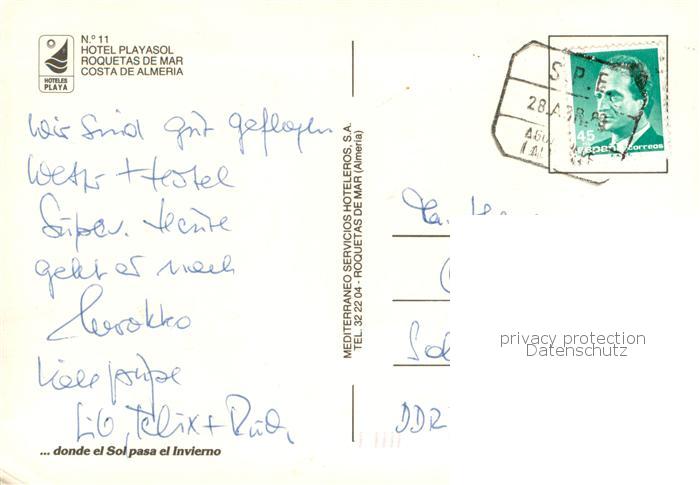 N.º 11
HOTEL PLAYASOL
ROQUETAS DE MAR
COSTA DE ALMERIA
HOTELES
PLAYA
Wir sind gut geflogen
Wetter + Hotel
Super. Heute
geht es nach
Marokko
Viele Grüße
Felix + Rudi
... donde el Sol pasa el Invierno
MEDITERRANEO SERVICIOS HOTELEROS, S.A.
TEL. 32 22 04 - ROQUETAS DE MAR (Almería)
S.P.E
28 ABR. 8
45
correos
DDR
privacy protection
Datenschutz